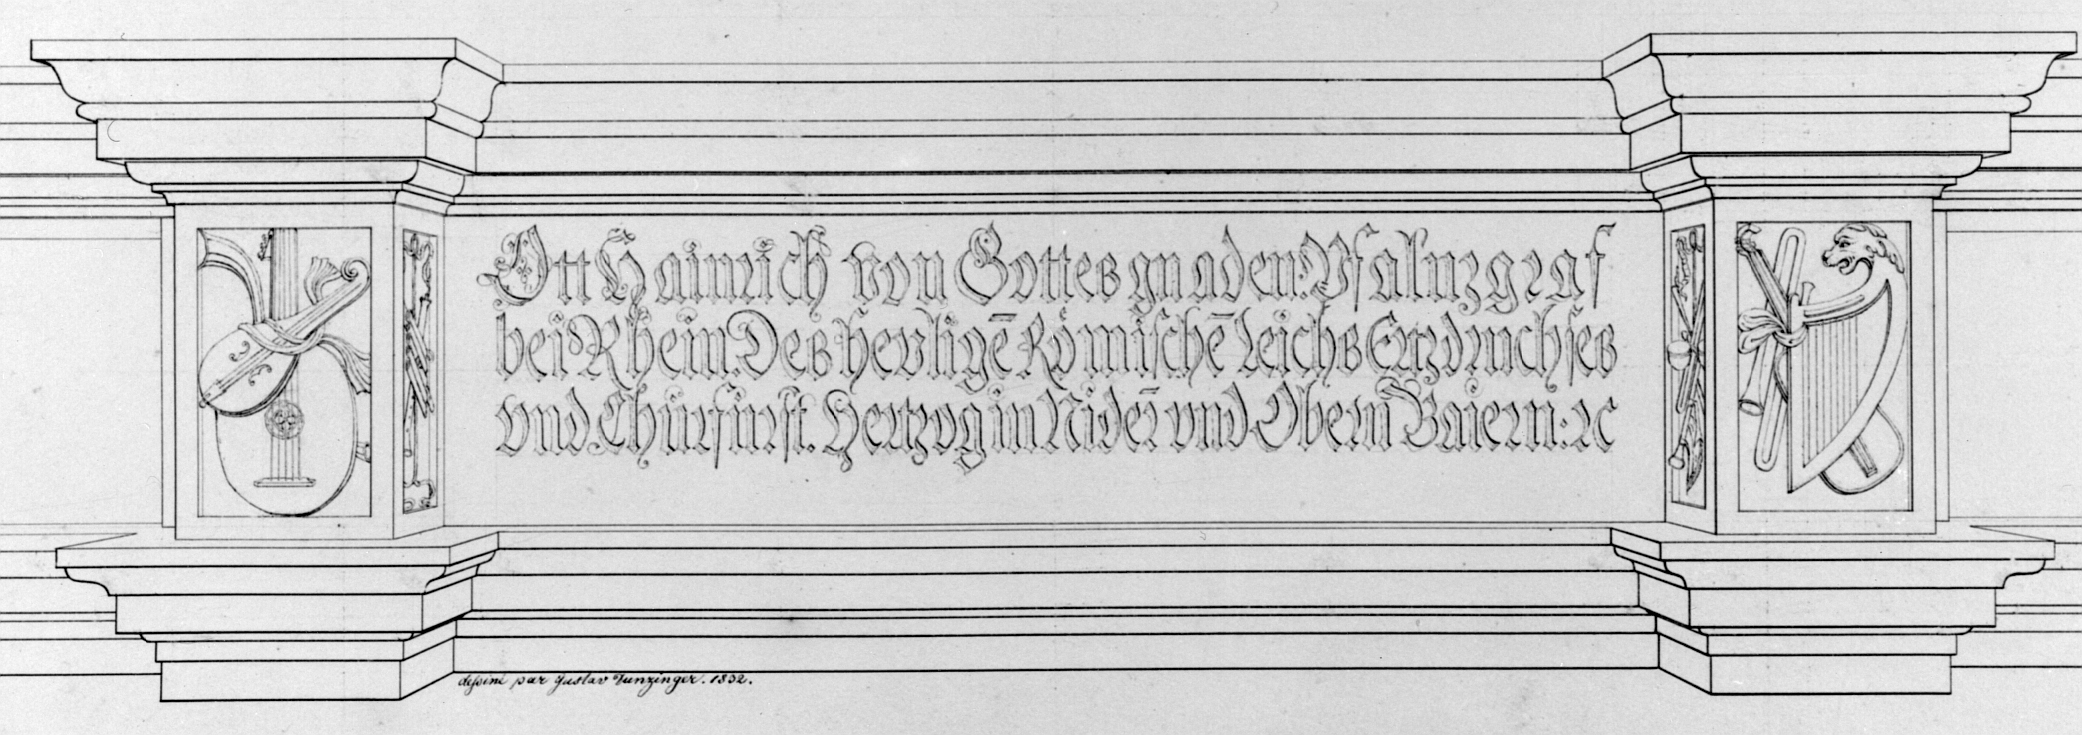 Ott Hainrich von Gottes gnaden: Pfalnzgraf
bei Rhein. Des heyligē Römischē Reichs Ertzdruchses
vnd Churfürst. Hertzog in Nideř vnd Oberň Baiern: ꝛc
deſsiné par Gustav Tunzinger. 1832.